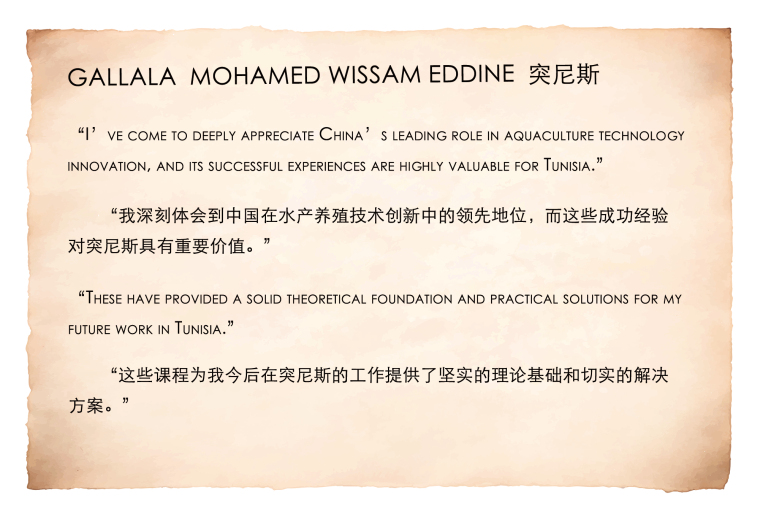 GALLALA MOHAMED WISSAM EDDINE 突尼斯
“I’VE COME TO DEEPLY APPRECIATE CHINA’S LEADING ROLE IN AQUACULTURE TECHNOLOGY
INNOVATION, AND ITS SUCCESSFUL EXPERIENCES ARE HIGHLY VALUABLE FOR TUNISIA.”
“我深刻体会到中国在水产养殖技术创新中的领先地位，而这些成功经验
对突尼斯具有重要价值。”
“THESE HAVE PROVIDED A SOLID THEORETICAL FOUNDATION AND PRACTICAL SOLUTIONS FOR MY
FUTURE WORK IN TUNISIA.”
“这些课程为我今后在突尼斯的工作提供了坚实的理论基础和切实的解决
方案。”